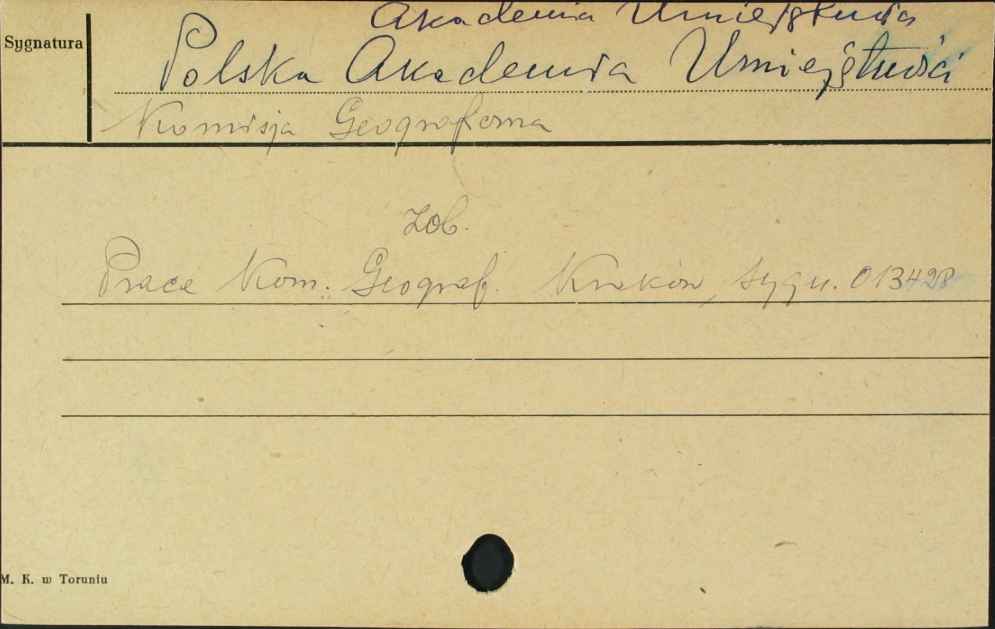 Akademia Umiejętności
Sygnatura
Polska Akademia Umiejętności
Komisja Geograficzna
Zob.
Prace Kom. Geograf. Kraków, sygn. 013428
M. K. w Toruniu